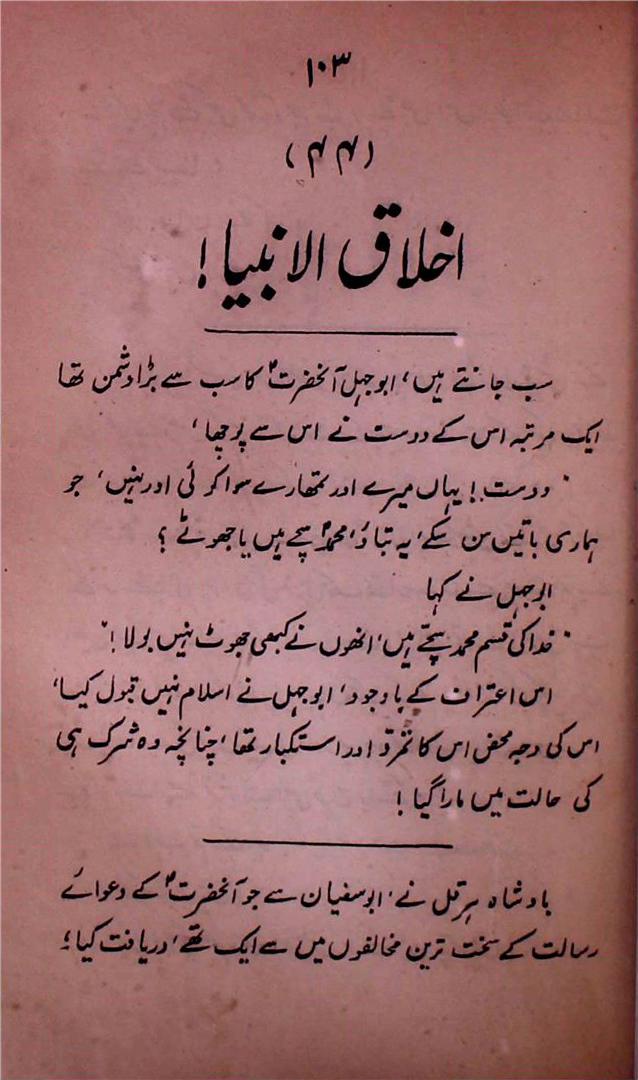 ۱۰۳
(۴۴)
اخلاق الانبیا!
سب جانتے ہیں، ابوجہل آنحضرتؐ کا سب سے بڑا دشمن تھا
ایک مرتبہ اس کے دوست نے اس سے پوچھا،
"دوست! یہاں میرے اور تمھارے سوا کوئی اور نہیں، جو
ہماری باتیں سن سکے، یہ بتاؤ، محمدؐ سچے ہیں یا جھوٹے؟
ابوجہل نے کہا
"خدا کی قسم محمد سچّے ہیں، انھوں نے کبھی جھوٹ نہیں بولا!"
اس اعتراف کے باوجود، ابوجہل نے اسلام نہیں قبول کیا،
اس کی وجہ محض اس کا تمرّد اور استکبار تھا، چنانچہ وہ شرک ہی
کی حالت میں مارا گیا!
بادشاہ ہرقل نے، ابوسفیان سے جو آنحضرتؐ کے دعوائے
رسالت کے سخت ترین مخالفوں میں سے ایک تھے، دریافت کیا؛